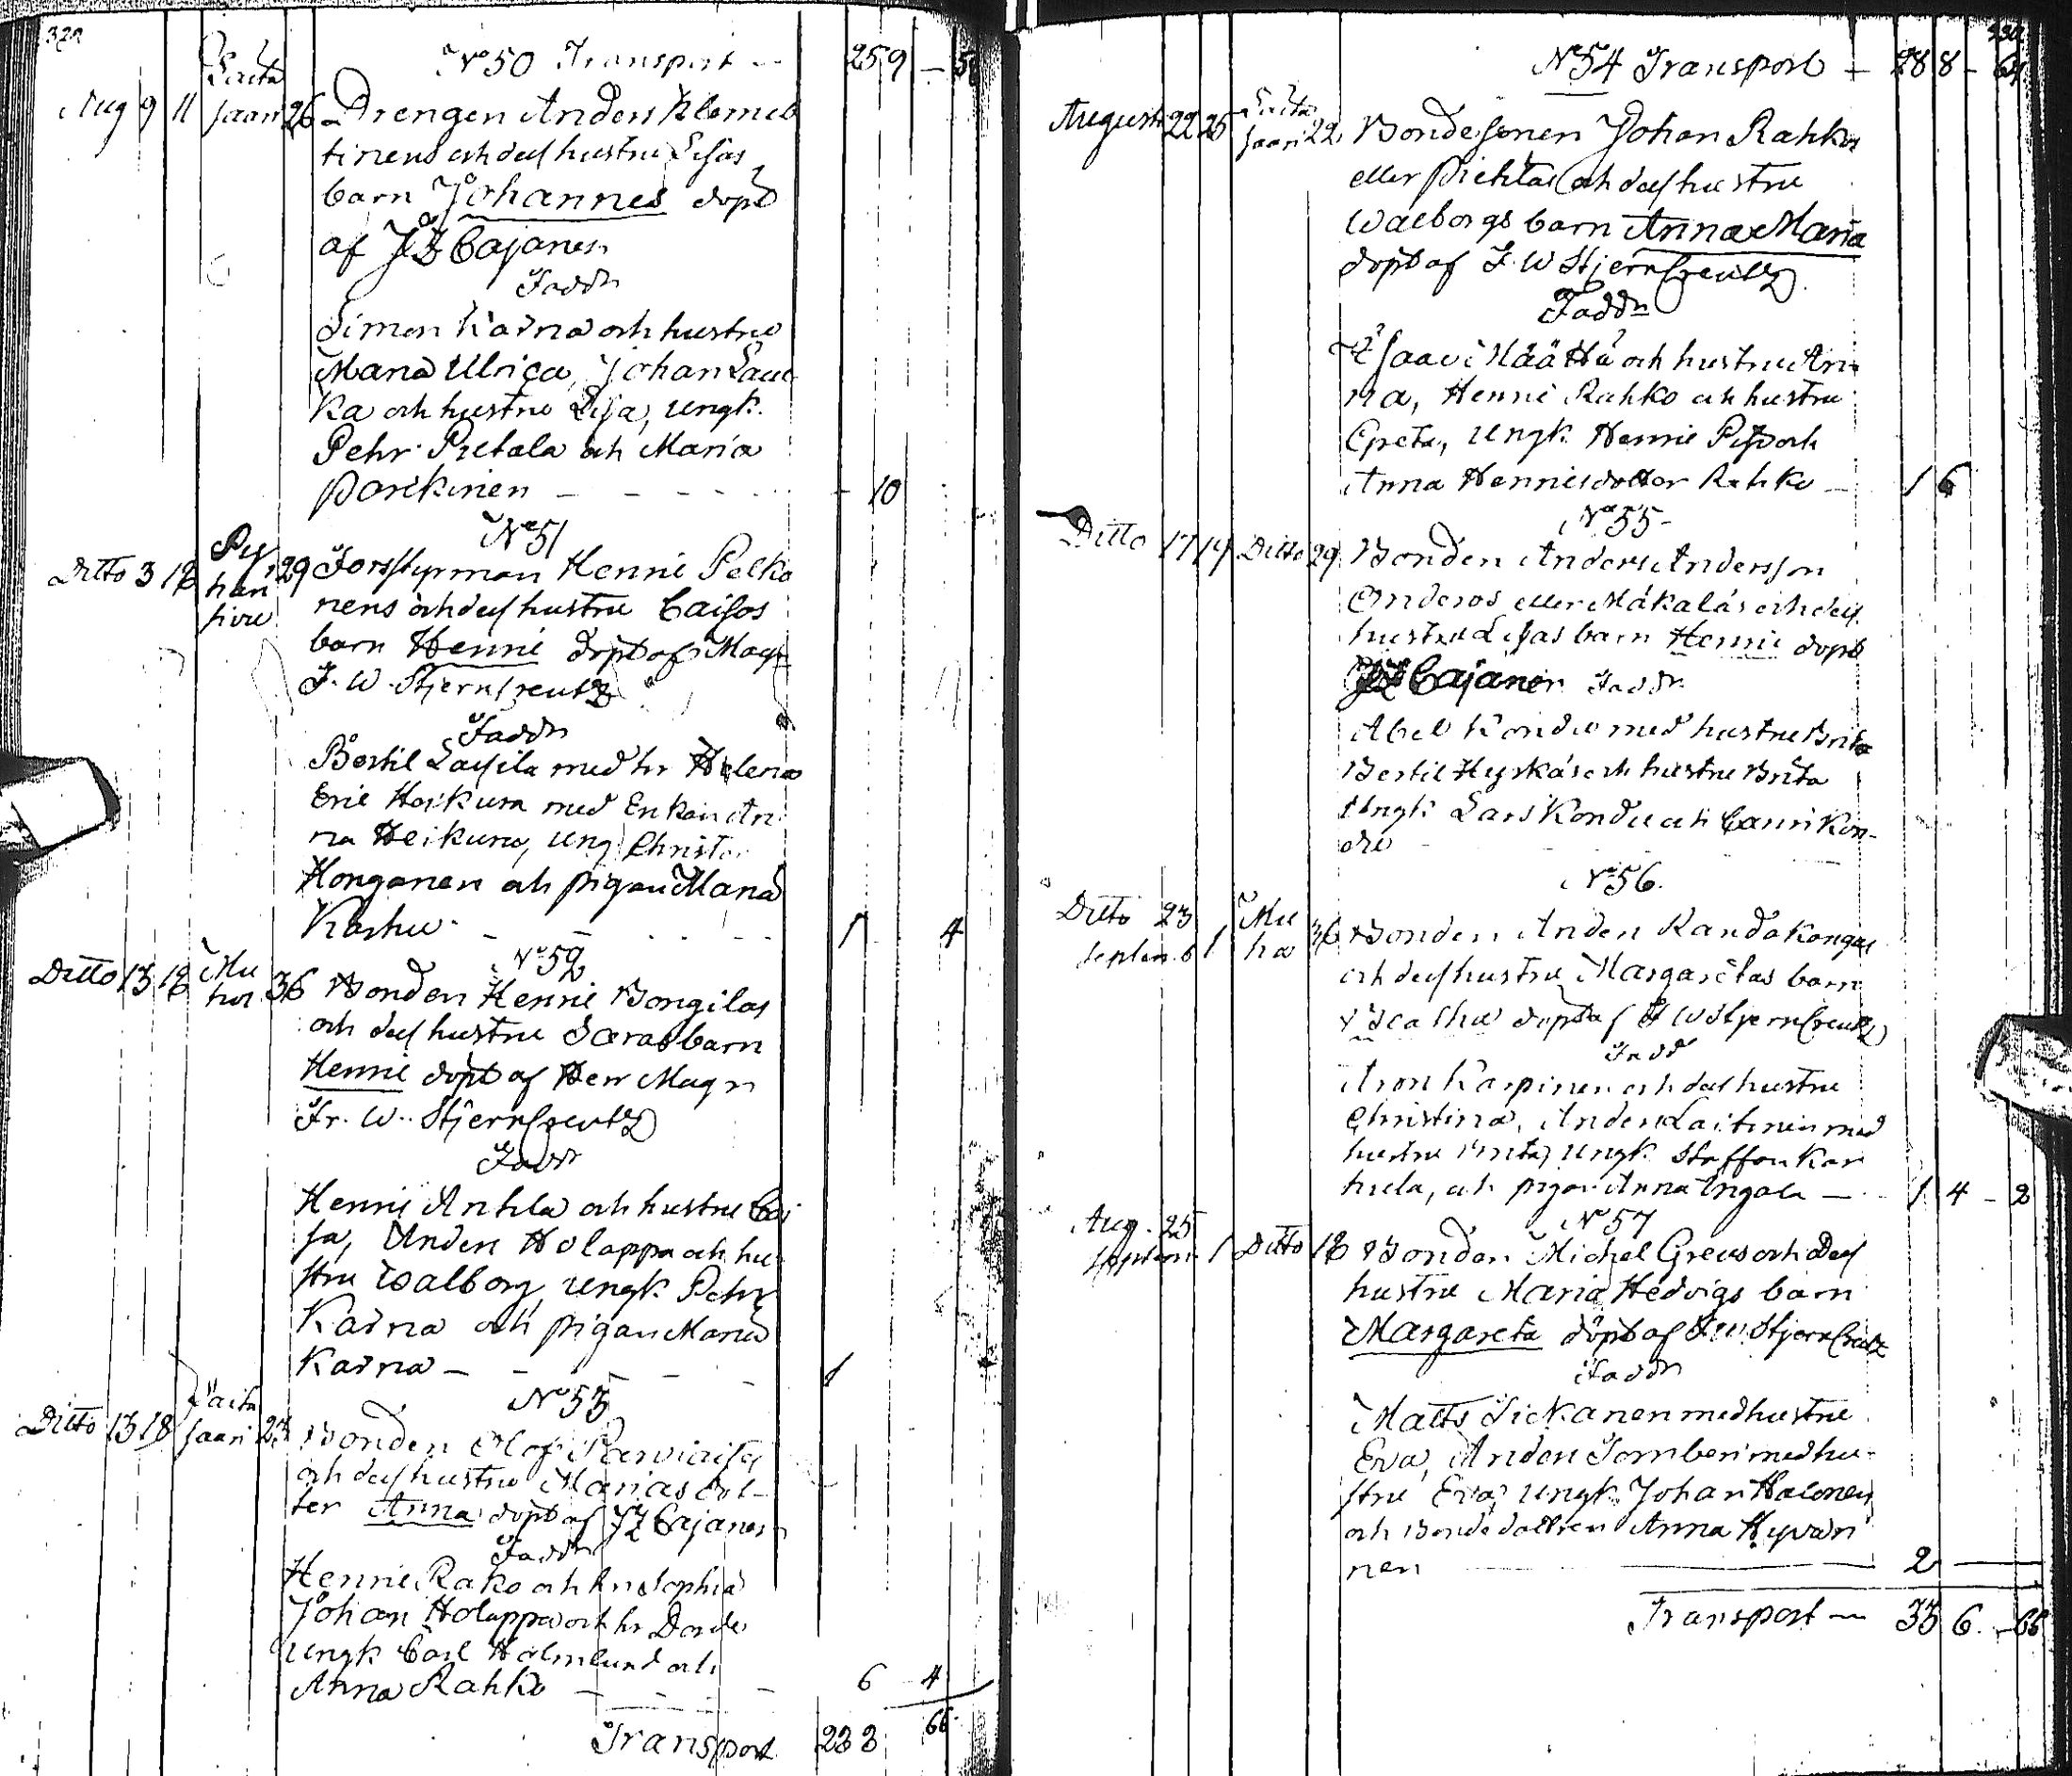 329
No 50 Transport
259 - 5
Aug 9 11 Saita
saari 26 Drengen Anders Klemet
tinens och dess hustru Lisas
barn Johannes döpt
af JZ Cajaner
Faddr
Simon Karna och hustru
Maria Ulrica, Johan Lau
ka och hustru Lisa, ungk.
Pehr Pietala och Maria
Parikinen - - - - 10
No 51
Ditto 3 12 Py
hän
sivu 29 Forsstyrman Henric Pelko
nens och dess hustru Caisas
barn Henric döpt af Mag
F. W. StjernCreutz
Faddr
Bertil Lassila med hr Helena
Eric Heikura med Enkan An
na Heikura, ung Christ
Honganen och pigan Maria
Karhu - - 1 4
No 52
Ditto 13 18 Mu
hos 36 Bonden Henric Bongilas
och dess hustru Saras barn
Henric döpt af Herr Magr
Fr. W. StjernCreutz
Faddr
Henric Anttila och hustru Cai
sa, Anders Holappa och hu
stru Walborg ungk Pehr
Karna och pigan Maria
Karna - - - - 1
No 53
Ditto 13 18 Saita
saari 23 Bonden Olof Parviaises
och dess hustru Marias dot-
ter Anna döpt af JZ Cajaner
Faddr
Henric Rako och hr Sophia
Johan Holappa och hr Dorde
ungk Carl Holmlund och
Anna Rahko - - - - 6 4
Transport 233 66
No 54 Transport - 288 - 64
Augusti 22 25 Saita
saari 22 Bondesonen Johan Rahko
eller Pichtas och dess hustru
Walborgs barn Anna Maria
döpt af F. W StjernCreutz
Faddr
Isaac Määttä och hustru An
na, Henric Rahko och hustru
Greta, ungk. Henric Piso och
Anna Henricsdotter Rahko - 1 6
No 55
Ditto 17 19 Ditto 29 Bonden Anders Andersson
Onderos eller Mäkäläs och dess
hustru Lisas barn Henric döpt
JZ Cajaner Faddr
Abel Kondu med hustru Brita
Bertil Hyrkäs och hustru Brita
ungk Lars Kondu och Carin Kon-
du
No 56.
Ditto 23
Septem. 1 Mu
ho 36 Bonden Anders Randakangas
och dess hustru Margaretas barn
döpt af F W StjernCreutz
Fadd
Aron Karpinen och dess hustru
Christina, Anders Laitinen med
hustru Brita, ungk Staffan Kar
hula, och pigan Anna Ingala - 1 4 - 2
No 57
Aug. 25
Septem 1 Ditto 18 Bonden Michel Greus och dess
hustru Maria Hedvigs barn
Margareta döpt af F W StjernCreutz
Faddr
Matts Sickanen med hustru
Eva, Anders Tornberi med hu-
stru Eva, ungk Johan Halonen
och Bondedottren Anna Hyvän
nen 2
Transport - 336 - 66